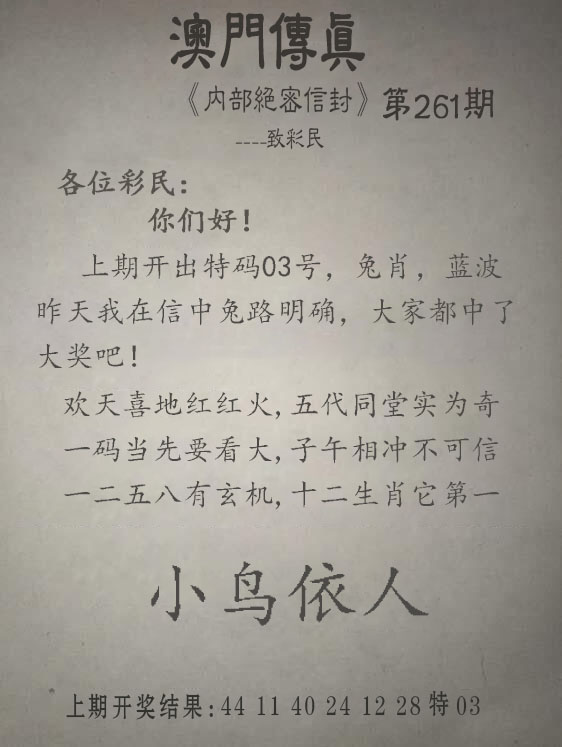 澳門傳眞
《内部絕密信封》第261期
----致彩民
各位彩民:
你们好!
上期开出特码03号, 兔肖, 蓝波
昨天我在信中兔路明确, 大家都中了
大奖吧!
欢天喜地红红火, 五代同堂实为奇
一码当先要看大, 子午相冲不可信
一二五八有玄机, 十二生肖它第一
小鸟依人
上期开奖结果: 44 11 40 24 12 28 特 03